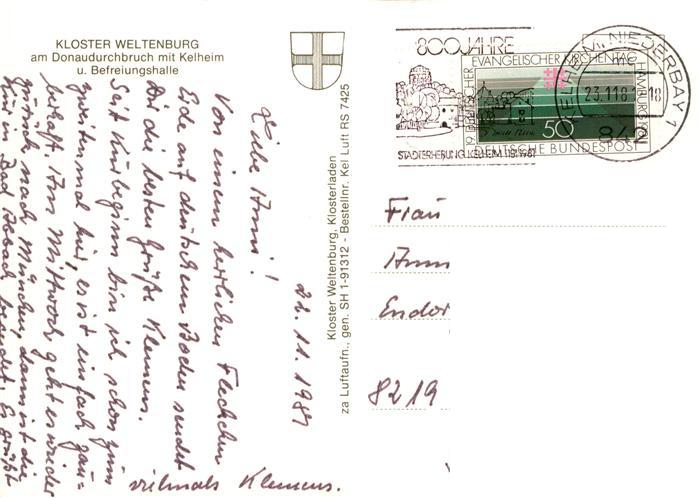 KLOSTER WELTENBURG
am Donaudurchbruch mit Kelheim
u. Befreiungshalle
22.11.1981
Liebe Anni!
Von einem herrlichen Fleckchen
Erde auf deutschem Boden sendet
Dir die besten Grüße Klemens.
Seit Kurbeginn bin ich schon zum
zweitenmal hier, es ist einfach zau=
berhaft. Am Mittwoch geht es wieder
zurück nach München, dann ist die
Kur in Bad Abbach beendet. Es grüßt
vielmals Klemens.
Kloster Weltenburg, Klosterladen
za Luftaufn., gen. SH 1-91312 - Bestellnr. Kel Luft RS 7425
800 JAHRE
STADTERHEBUNG KELHEIM 1181-1981
19. DEUTSCHER EVANGELISCHER KIRCHENTAG HAMBURG 1981
50
DEUTSCHE BUNDESPOST
KELHEIM, NIEDERBAY 1
23.11.81 18
842
Frau
Anni
Endor
8219